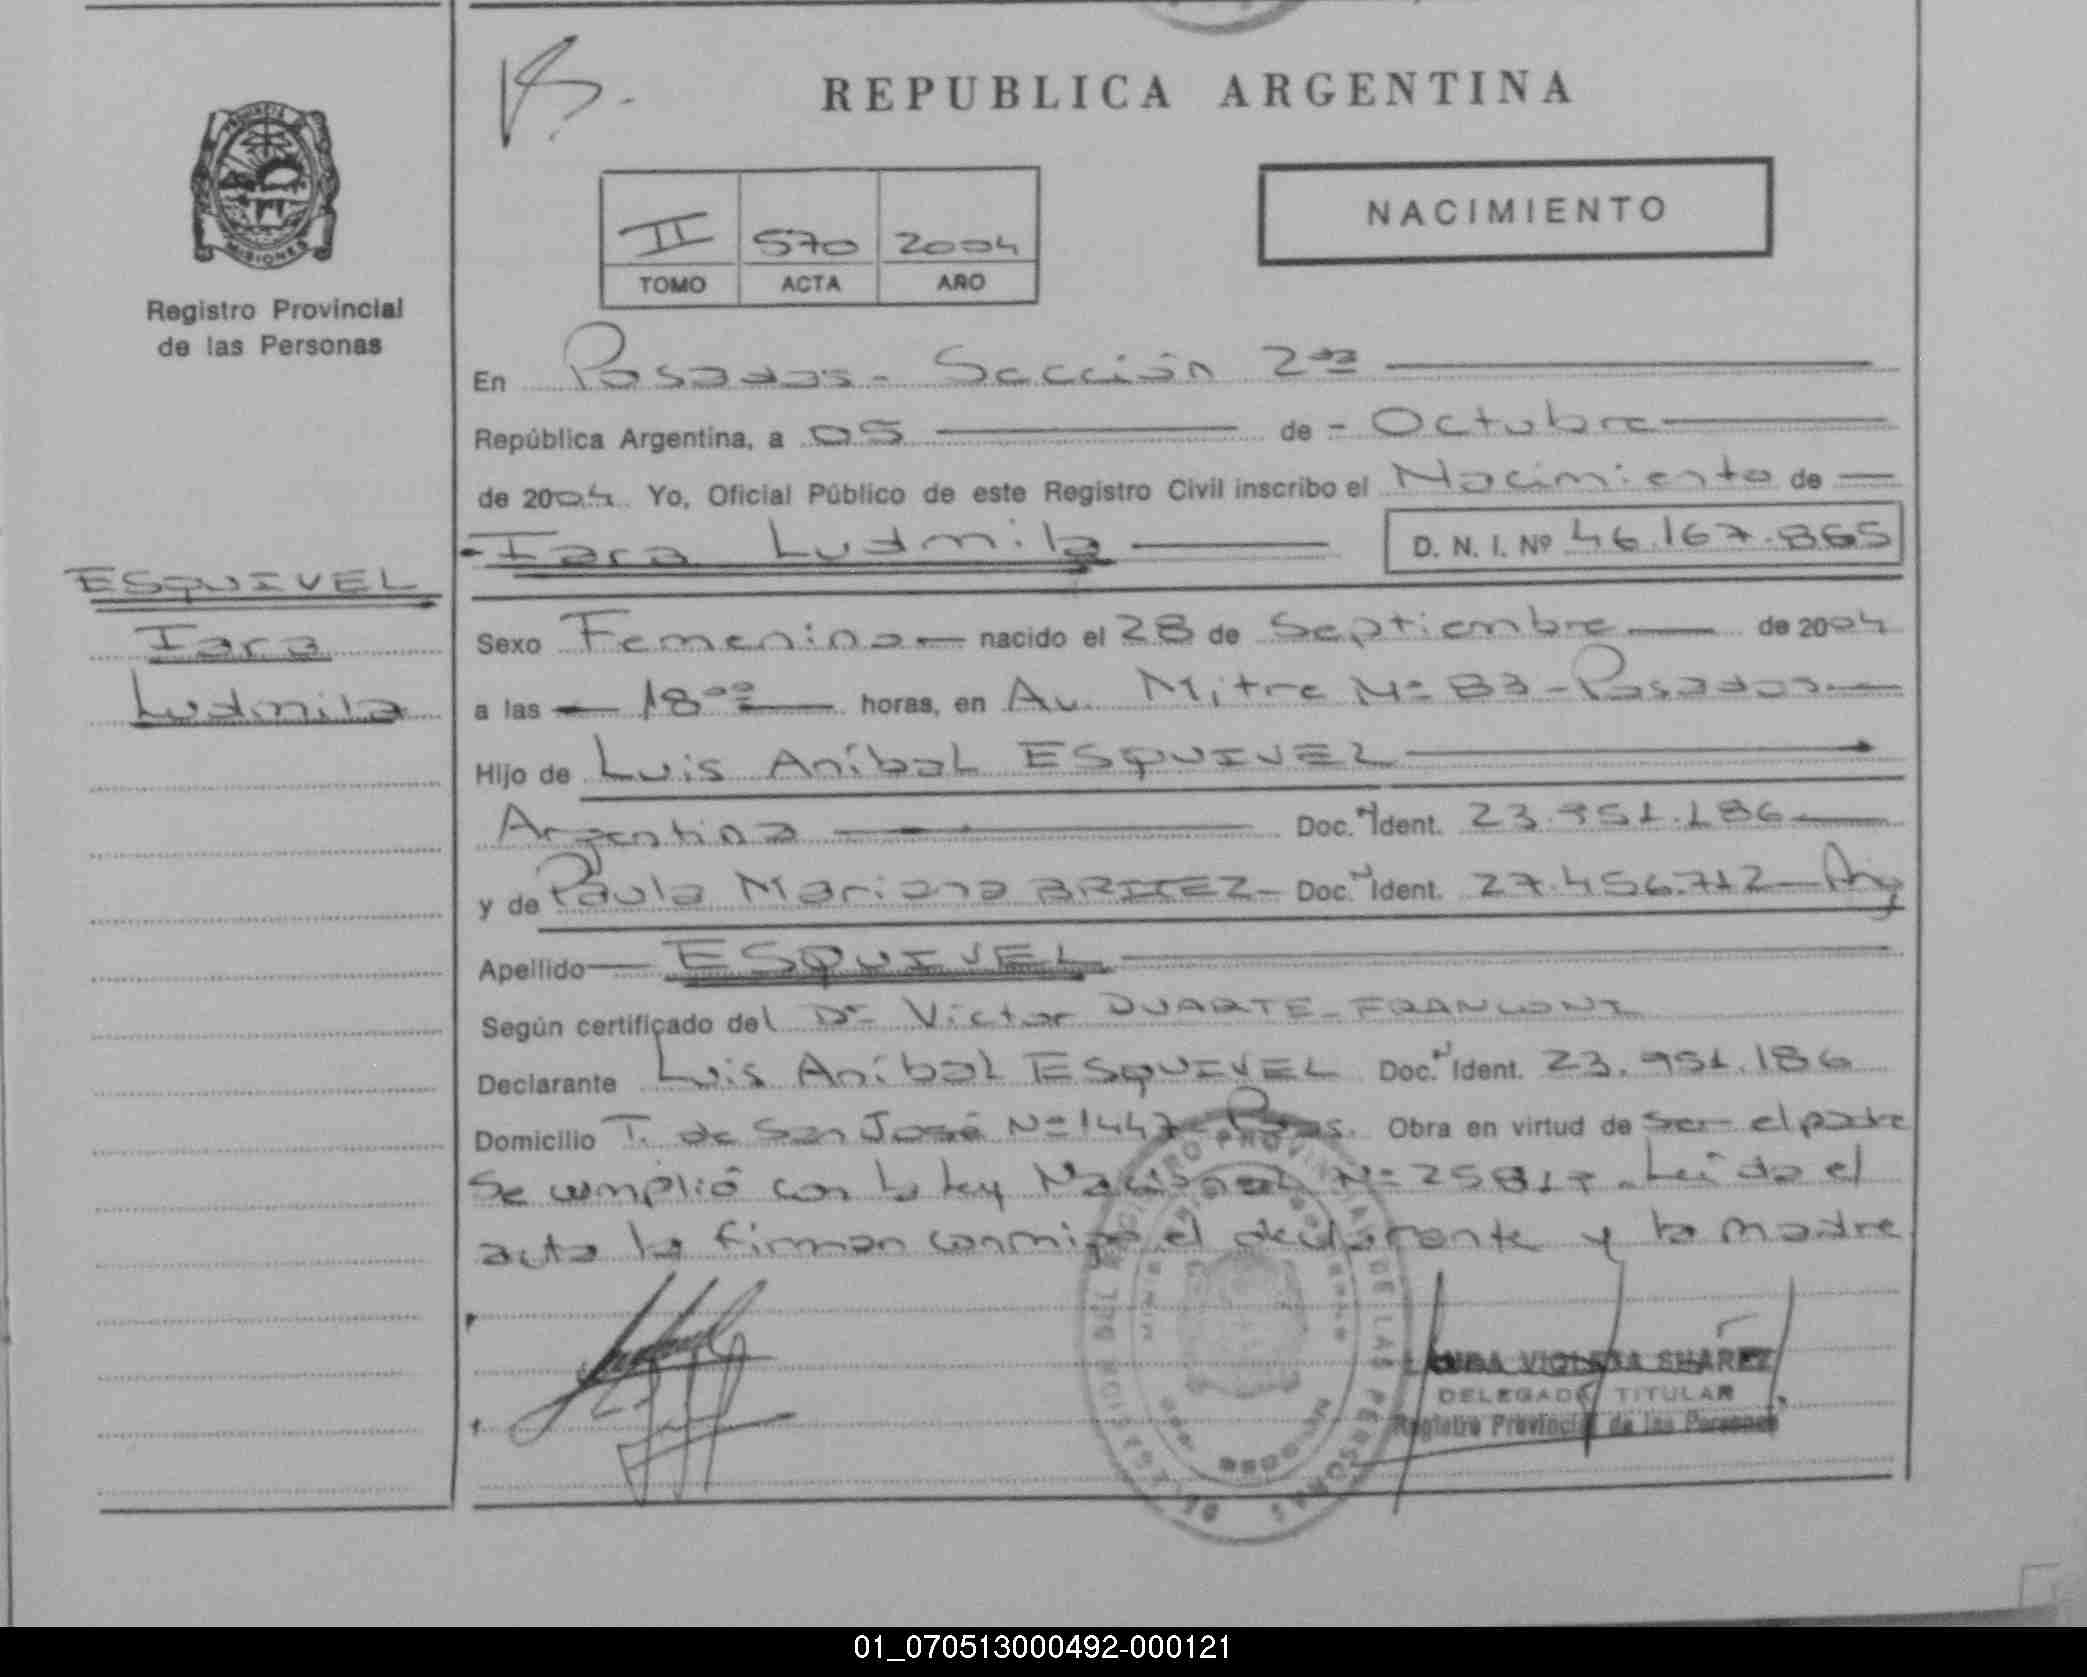 REPUBLICA ARGENTINA
PROVINCIA DE
MISIONES
Registro Provincial
de las Personas
NACIMIENTO
II 570 2004
TOMO ACTA AÑO
En Posadas - Sección 2da
República Argentina, a 05 de - Octubre
de 2004 Yo, Oficial Público de este Registro Civil inscribo el Nacimiento de
Iara Ludmila D. N. I. Nº 46.167.865
ESQUIVEL
Iara
Ludmila
Sexo Femenino nacido el 28 de Septiembre de 2004
a las 18 00 horas, en Av. Mitre Nº 83 - Posadas
Hijo de Luis Aníbal ESQUIVEL
Argentina Doc. N Ident. 23.951.186
y de Paula Mariana BRITEZ - Doc. N Ident. 27.456.712 - Arg
Apellido ESQUIVEL
Según certificado del Dr. Victor DUARTE - FRANCONI
Declarante Luis Aníbal ESQUIVEL Doc. N Ident. 23.951.186
Domicilio T. de San José Nº 1447 Pdas. Obra en virtud de ser el padre
Se cumplió con la Ley Nacional Nº 25817. Leída el
acta la firman conmigo el declarante y la madre
VIOLETA SUAREZ
DELEGADA TITULAR
Registro Provincial de las Personas
REGISTRO PROVINCIAL DE LAS PERSONAS
MISIONES
01_070513000492-000121